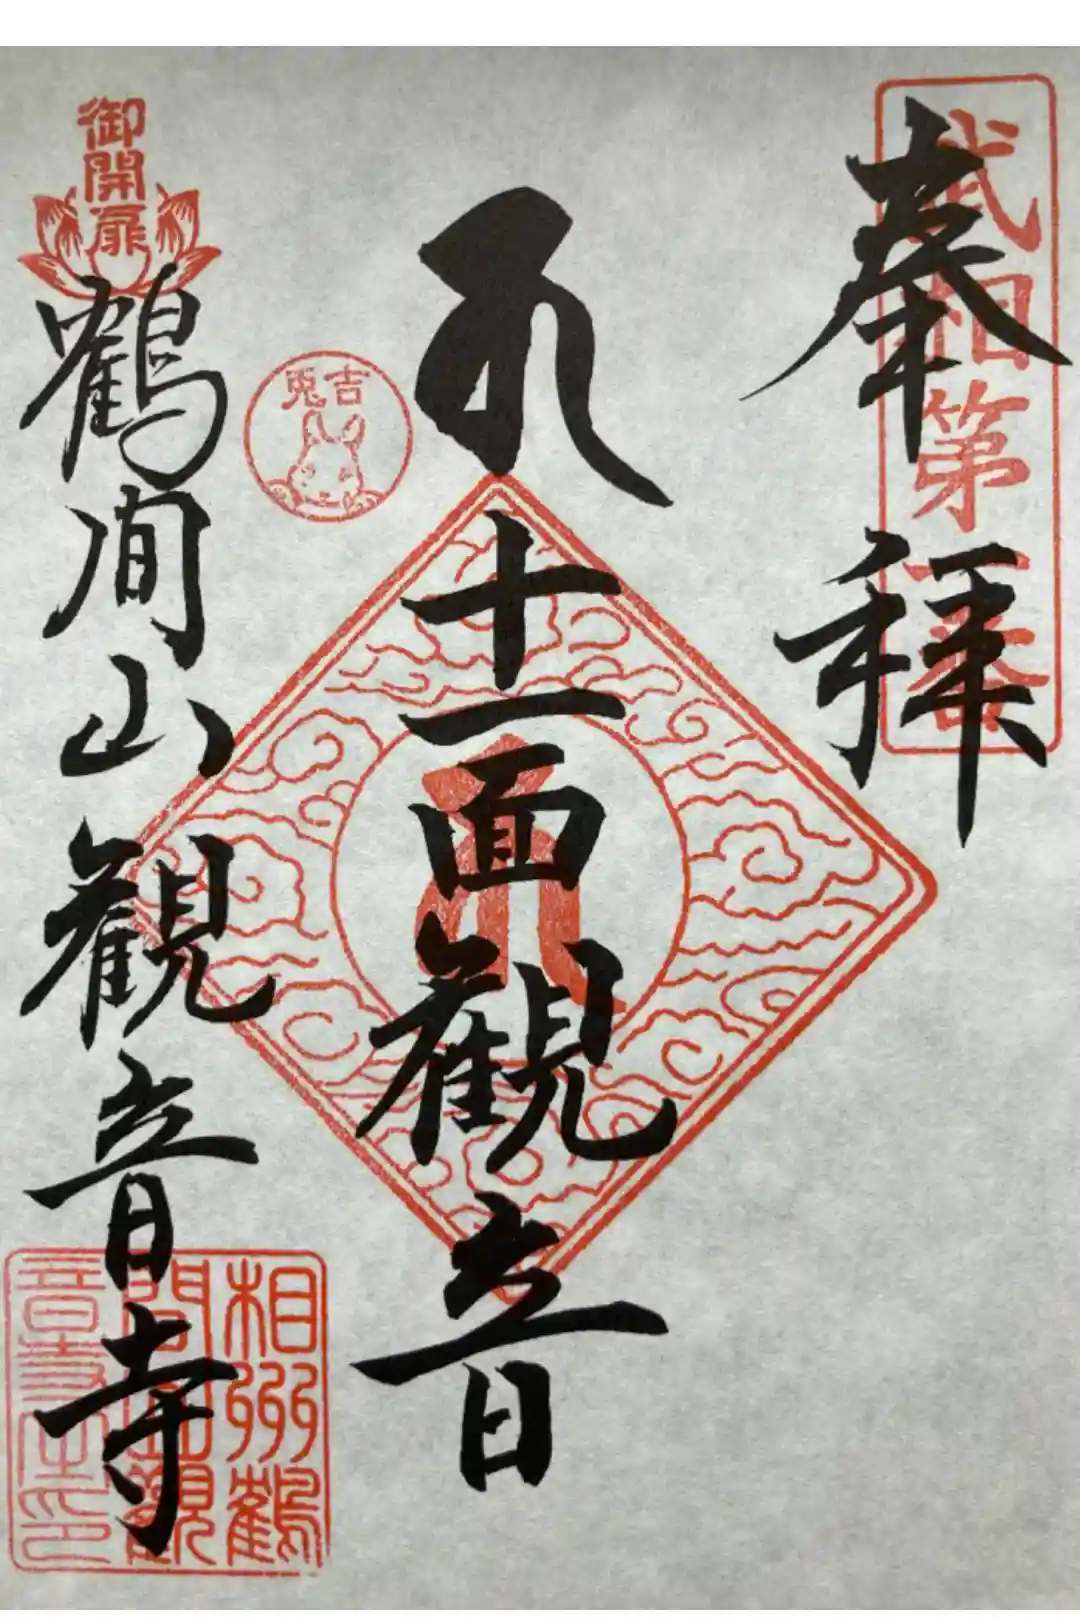 奉拝
武相第一番
十一面観音
吉兎
御開扉
鶴間山観音寺
相州鶴
間山観
音寺之印